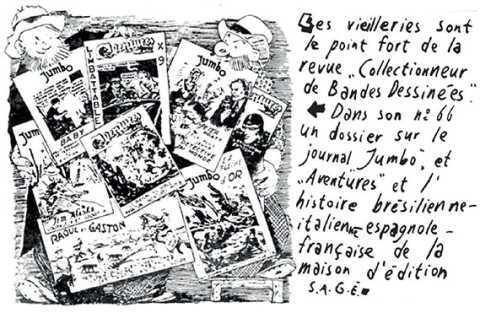 Les vieilleries sont
le point fort de la
revue „Collectionneur
de Bandes Dessinées".
← Dans son nº 66
un dossier sur le
journal „Jumbo", et
„Aventures" et l'
histoire brésilienne-
italienne espagnole-
française de la
maison d'édition
S.A.G.E.
Jumbo
L'IMBATTABLE
Aventures
X9
Jumbo
Jumbo
BABY
Aventures
Jim Alaska
Jumbo
L'OR
RAOUL et GASTON